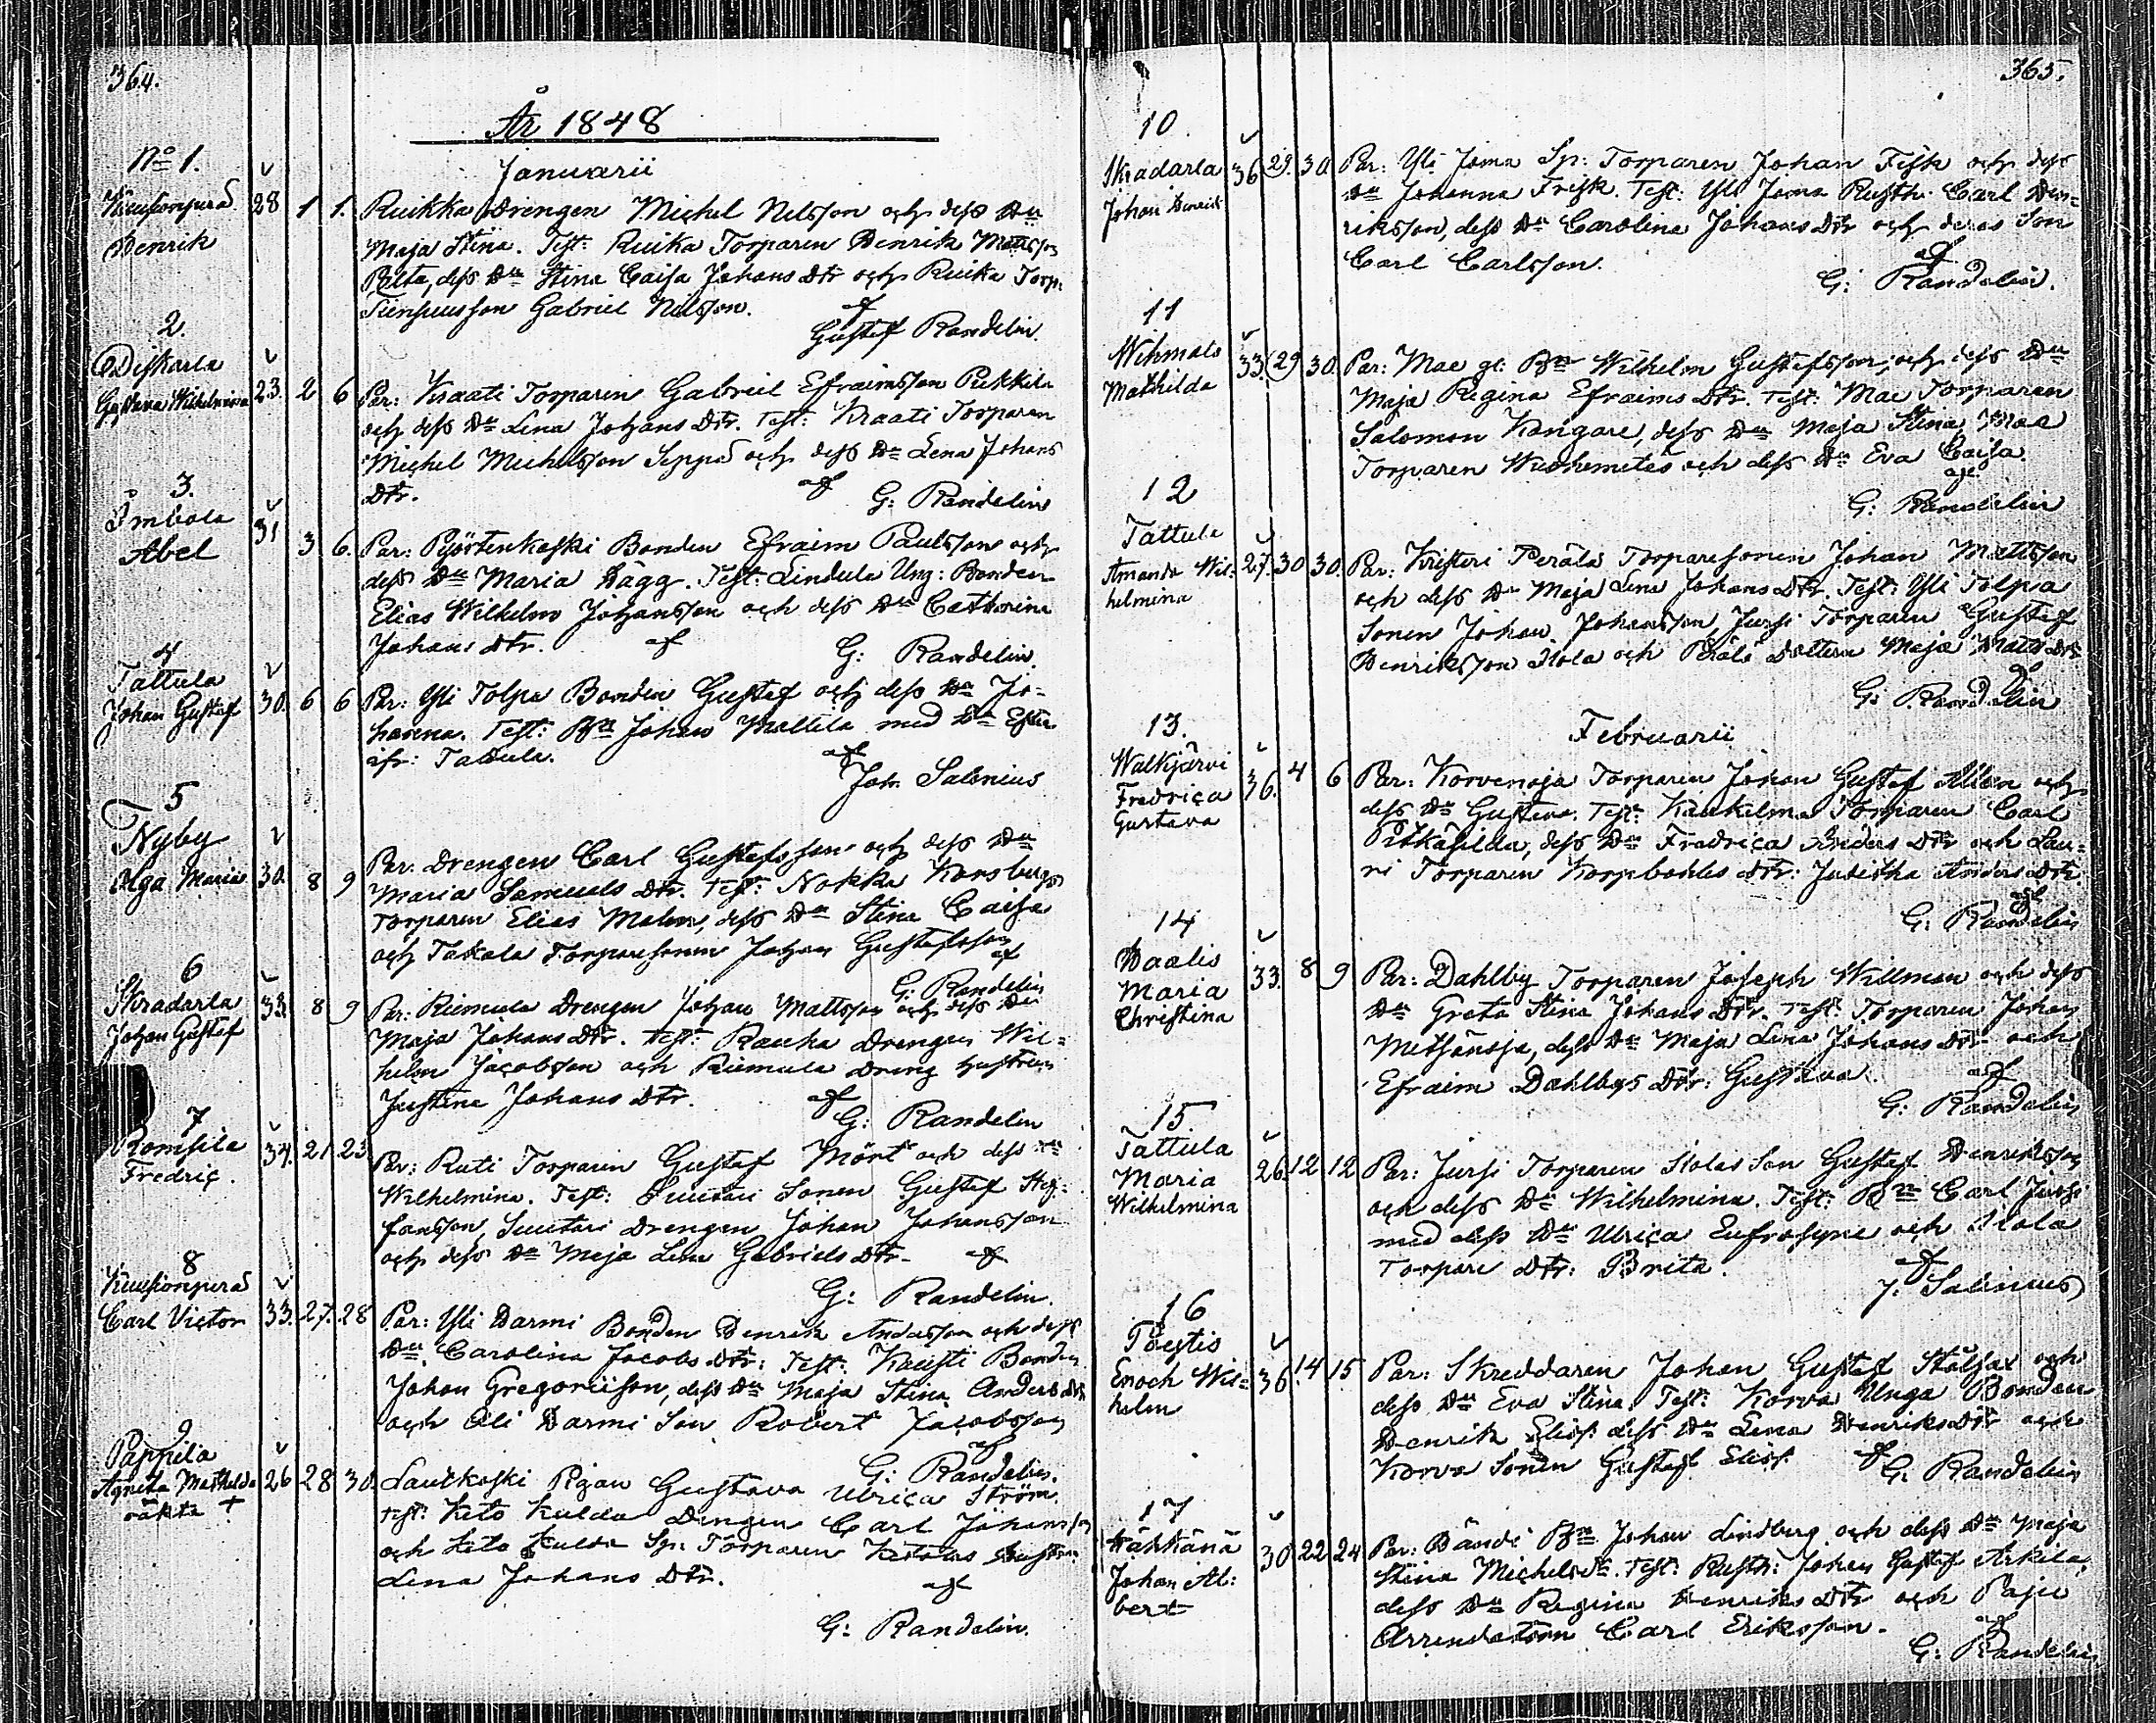 364.
År 1848
Januarii
No 1.
Kuusjonperä
Henrik
28 1 1.
Ruikka Drengen Michel Nilsson och dess Hu
Maja Stina. Test: Ruika Torparen Henrik Mattsson
dess Hu Stina Caisa Johans Dtr och Ruika Torp.
Gabriel Nilsson.
af
Gustaf Randelin.
2.
Diskarla
Gustava Wilhelmina
23. 2 6
Par: Kraati Torparen Gabriel Efraimsson Pukkila
och dess Hu Lena Johans Dtr. Test: Kraati Torparen
Michel Michelsson Seppä och dess Hu Lena Johans
Dtr.
af
G: Randelin
3.
Imbola
Abel
31 3 6.
Par: Pyörtenkoski Bonden Efraim Paulsson och
dess Hu Maria Hägg. Test: Lindula Ung: Bonden
Elias Wilhelm Johansson och dess Hu Catharina
Johans Dtr.
af
G: Randelin.
4
Tattula
Johan Gustaf
30. 6 6
Par: Yli Tolpa Bonden Gustaf och dess Hu Jo=
hanna. Test: Bn Johan Mattila med Hu Ester
ifr: Tattula.
af
Joh. Salenius
5
Nyby
Olga Maria
30. 8 9
Par: Drengen Carl Gustafsson och dess Hu
Maria Samuels Dtr. Test: Nokka Korsbergs
Torparen Elias Malm, dess Hu Stina Caisa
och Takala Torparesonen Johan Gustafsson
af
G: Randelin
6
Skradarla
Johan Gustaf
33. 8 9
Par: Riemula Drengen Johan Mattsson och dess Hu
Maja Johans Dtr. Test: Rauha Drengen Wil=
helm Jacobsson och Riemula Dreng hustrun
Justina Johans Dtr.
af
G: Randelin
7
Romsila
Fredric.
34. 21. 23
Par: Ruti Torparen Gustaf Mört och dess Hu
Wilhelmina. Test: Suutari Sonen Gustaf Ste=
fansson, Suutari Drengen Johan Johansson
och dess Hu Maja Lena Gabriels Dtr.
af
G: Randelin.
8
Kuusjonperä
Carl Victor
33. 27. 28
Par: Yli Harmi Bonden Henrik Andersson och dess
Hu. Carolina Jacobs Dtr: Test: Kausti Bonden
Johan Gregoriison, dess Hu Maja Stina Anders Dtr
och Ali Harmi Son Robert Jacobsson
af
G: Randelin.
9
Pappila
Agneta Mathilda
oäkta +
26 28 30.
Lautkoski Pigan Gustava Ulrica Ström.
Test: Keto Kulda Drengen Carl Johansson
och Keto Kulda Sp: Torparen hustru
Lena Johans Dtr.
af
G: Randelin.
365.
10.
Skradarla
Johan Henrik
36 29. 30.
Par: Yli Jama Sp: Torparen Johan Fisk och dess
Hu Johanna Frisk. Test: Yli Jama Rusth: Carl Hen=
riksson, dess Hu Carolina Johans Dtr och deras Son
Carl Carlsson.
af
G: Randelin.
11
Wihmalo
Mathilda
33. 29 30.
Par: Mae gl: Bn Wilhelm Gustafsson, och dess Hu
Maja Regina Efraims Dtr. Test: Mae Torparen
Salomon Kangare, dess Hu Maja Stina, Mae
Torparen och dess Hu Eva Caisa.
af
G: Randelin
12
Tattula
Amanda Wil=
helmina
27. 30 30.
Par: Kristeri Perälä Torparesonen Johan Mattsson
och dess Hu Maja Lena Johans Dtr. Test: Yli Tolpa
Sonen Johan Johansson, Jussi Torparen Gustaf
Henriksson Isola och Perälä Dottern Maja Matts Dtr
af
G: Randelin
Februarii
13.
Walkjärvi
Fredrica
Gustava
36. 4 6
Par: Korvenoja Torparen Johan Gustaf Alben och
dess Hu Gustava. Test: Kankelma Torparen Carl
Pitkäsilda, dess Hu Fredrica Anders Dtr och Lau=
ri Torparen Korpbohles Dtr: Juditha Anders Dtr.
af
G: Randelin
14
Haalis
Maria
Christina
33. 8 9
Par: Dahlby Torparen Joseph Willman och dess
Hu Greta Stina Johans Dtr. Test: Torparen Johan
Metsänoja, dess Hu Maja Lena Johans Dtr och
Efraim Dahlbys Dtr: Gustava.
af
G: Randelin
15.
Tattula
Maria
Wilhelmina
26. 12 12
Par: Jussi Torparen Isolas Son Gustaf Henriksson
och dess Hu Wilhelmina. Test: Bn Carl Jussi
med dess Hu Ulrica Eufrosyne och Isola
Torpare Dtr: Brita.
af
J: Salenius
16
Töystis
Enoch Wil=
helm
36. 14 15
Par: Skreddaren Johan Gustaf och
dess Hu Eva Stina. Test: Korva Unga Bonden
Henrik Eliss: dess Hu Lena Henriks Dtr och
Korva Sonen Gustaf Eliss.
af
G. Randelin
17
Kähkänä
Johan Al=
bert
30 22 24
Par: Händi Bn Johan Lindberg och dess Hu Maja
Stina Michels Dr. Test: Rusth: Johan Gustaf Arkila,
dess Hu Regina Henriks Dtr och Paju
Arrendatorn Carl Eriksson.
af
G: Randelin